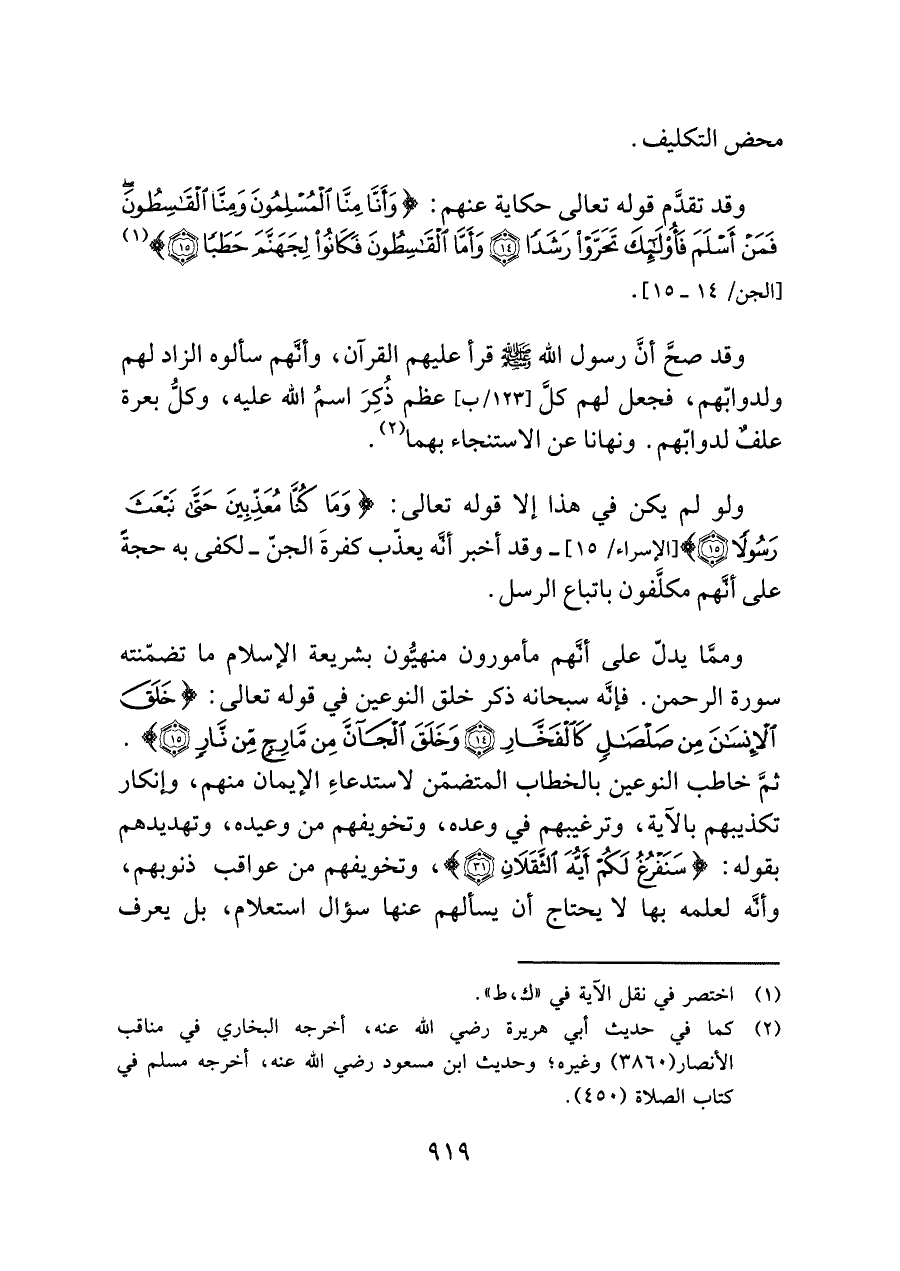 محض التكليف.
وقد تقدَّم قوله تعالى حكاية عنهم: ﴿وَأَنَّا مِنَّا ٱلْمُسْلِمُونَ وَمِنَّا ٱلْقَٰسِطُونَۖ
فَمَنْ أَسْلَمَ فَأُو۟لَٰٓئِكَ تَحَرَّوْا۟ رَشَدًا ١٤ وَأَمَّا ٱلْقَٰسِطُونَ فَكَانُوا۟ لِجَهَنَّمَ حَطَبًا ١٥﴾(١)
[الجن/ ١٤ ـ ١٥].
وقد صحَّ أنَّ رسول الله ﷺ قرأ عليهم القرآن، وأنَّهم سألوه الزاد لهم
ولدوابّهم، فجعل لهم كلَّ [١٢٣/ب] عظم ذُكِرَ اسمُ الله عليه، وكلُّ بعرة
علفٌ لدوابّهم. ونهانا عن الاستنجاء بهما(٢).
ولو لم يكن في هذا إلا قوله تعالى: ﴿وَمَا كُنَّا مُعَذِّبِينَ حَتَّىٰ نَبْعَثَ
رَسُولًا ١٥﴾[الإسراء/ ١٥] ـ وقد أخبر أنَّه يعذّب كفرةَ الجنّ ـ لكفى به حجةً
على أنَّهم مكلَّفون باتباع الرسل.
وممَّا يدلّ على أنَّهم مأمورون منهيُّون بشريعة الإسلام ما تضمّنته
سورة الرحمن. فإنَّه سبحانه ذكر خلق النوعين في قوله تعالى: ﴿خَلَقَ
ٱلْإِنسَٰنَ مِن صَلْصَٰلٍ كَٱلْفَخَّارِ ١٤ وَخَلَقَ ٱلْجَآنَّ مِن مَّارِجٍ مِّن نَّارٍ ١٥﴾.
ثمَّ خاطب النوعين بالخطاب المتضمّن لاستدعاءِ الإيمان منهم، وإنكار
تكذيبهم بالآية، وترغيبهم في وعده، وتخويفهم من وعيده، وتهديدهم
بقوله: ﴿سَنَفْرُغُ لَكُمْ أَيُّهَ ٱلثَّقَلَانِ ٣١﴾، وتخويفهم من عواقب ذنوبهم،
وأنَّه لعلمه بها لا يحتاج أن يسألهم عنها سؤال استعلام، بل يعرف
(١) اختصر في نقل الآية في «ك،ط».
(٢) كما في حديث أبي هريرة رضي الله عنه، أخرجه البخاري في مناقب
الأنصار(٣٨٦٠) وغيره؛ وحديث ابن مسعود رضي الله عنه، أخرجه مسلم في
كتاب الصلاة (٤٥٠).
٩١٩